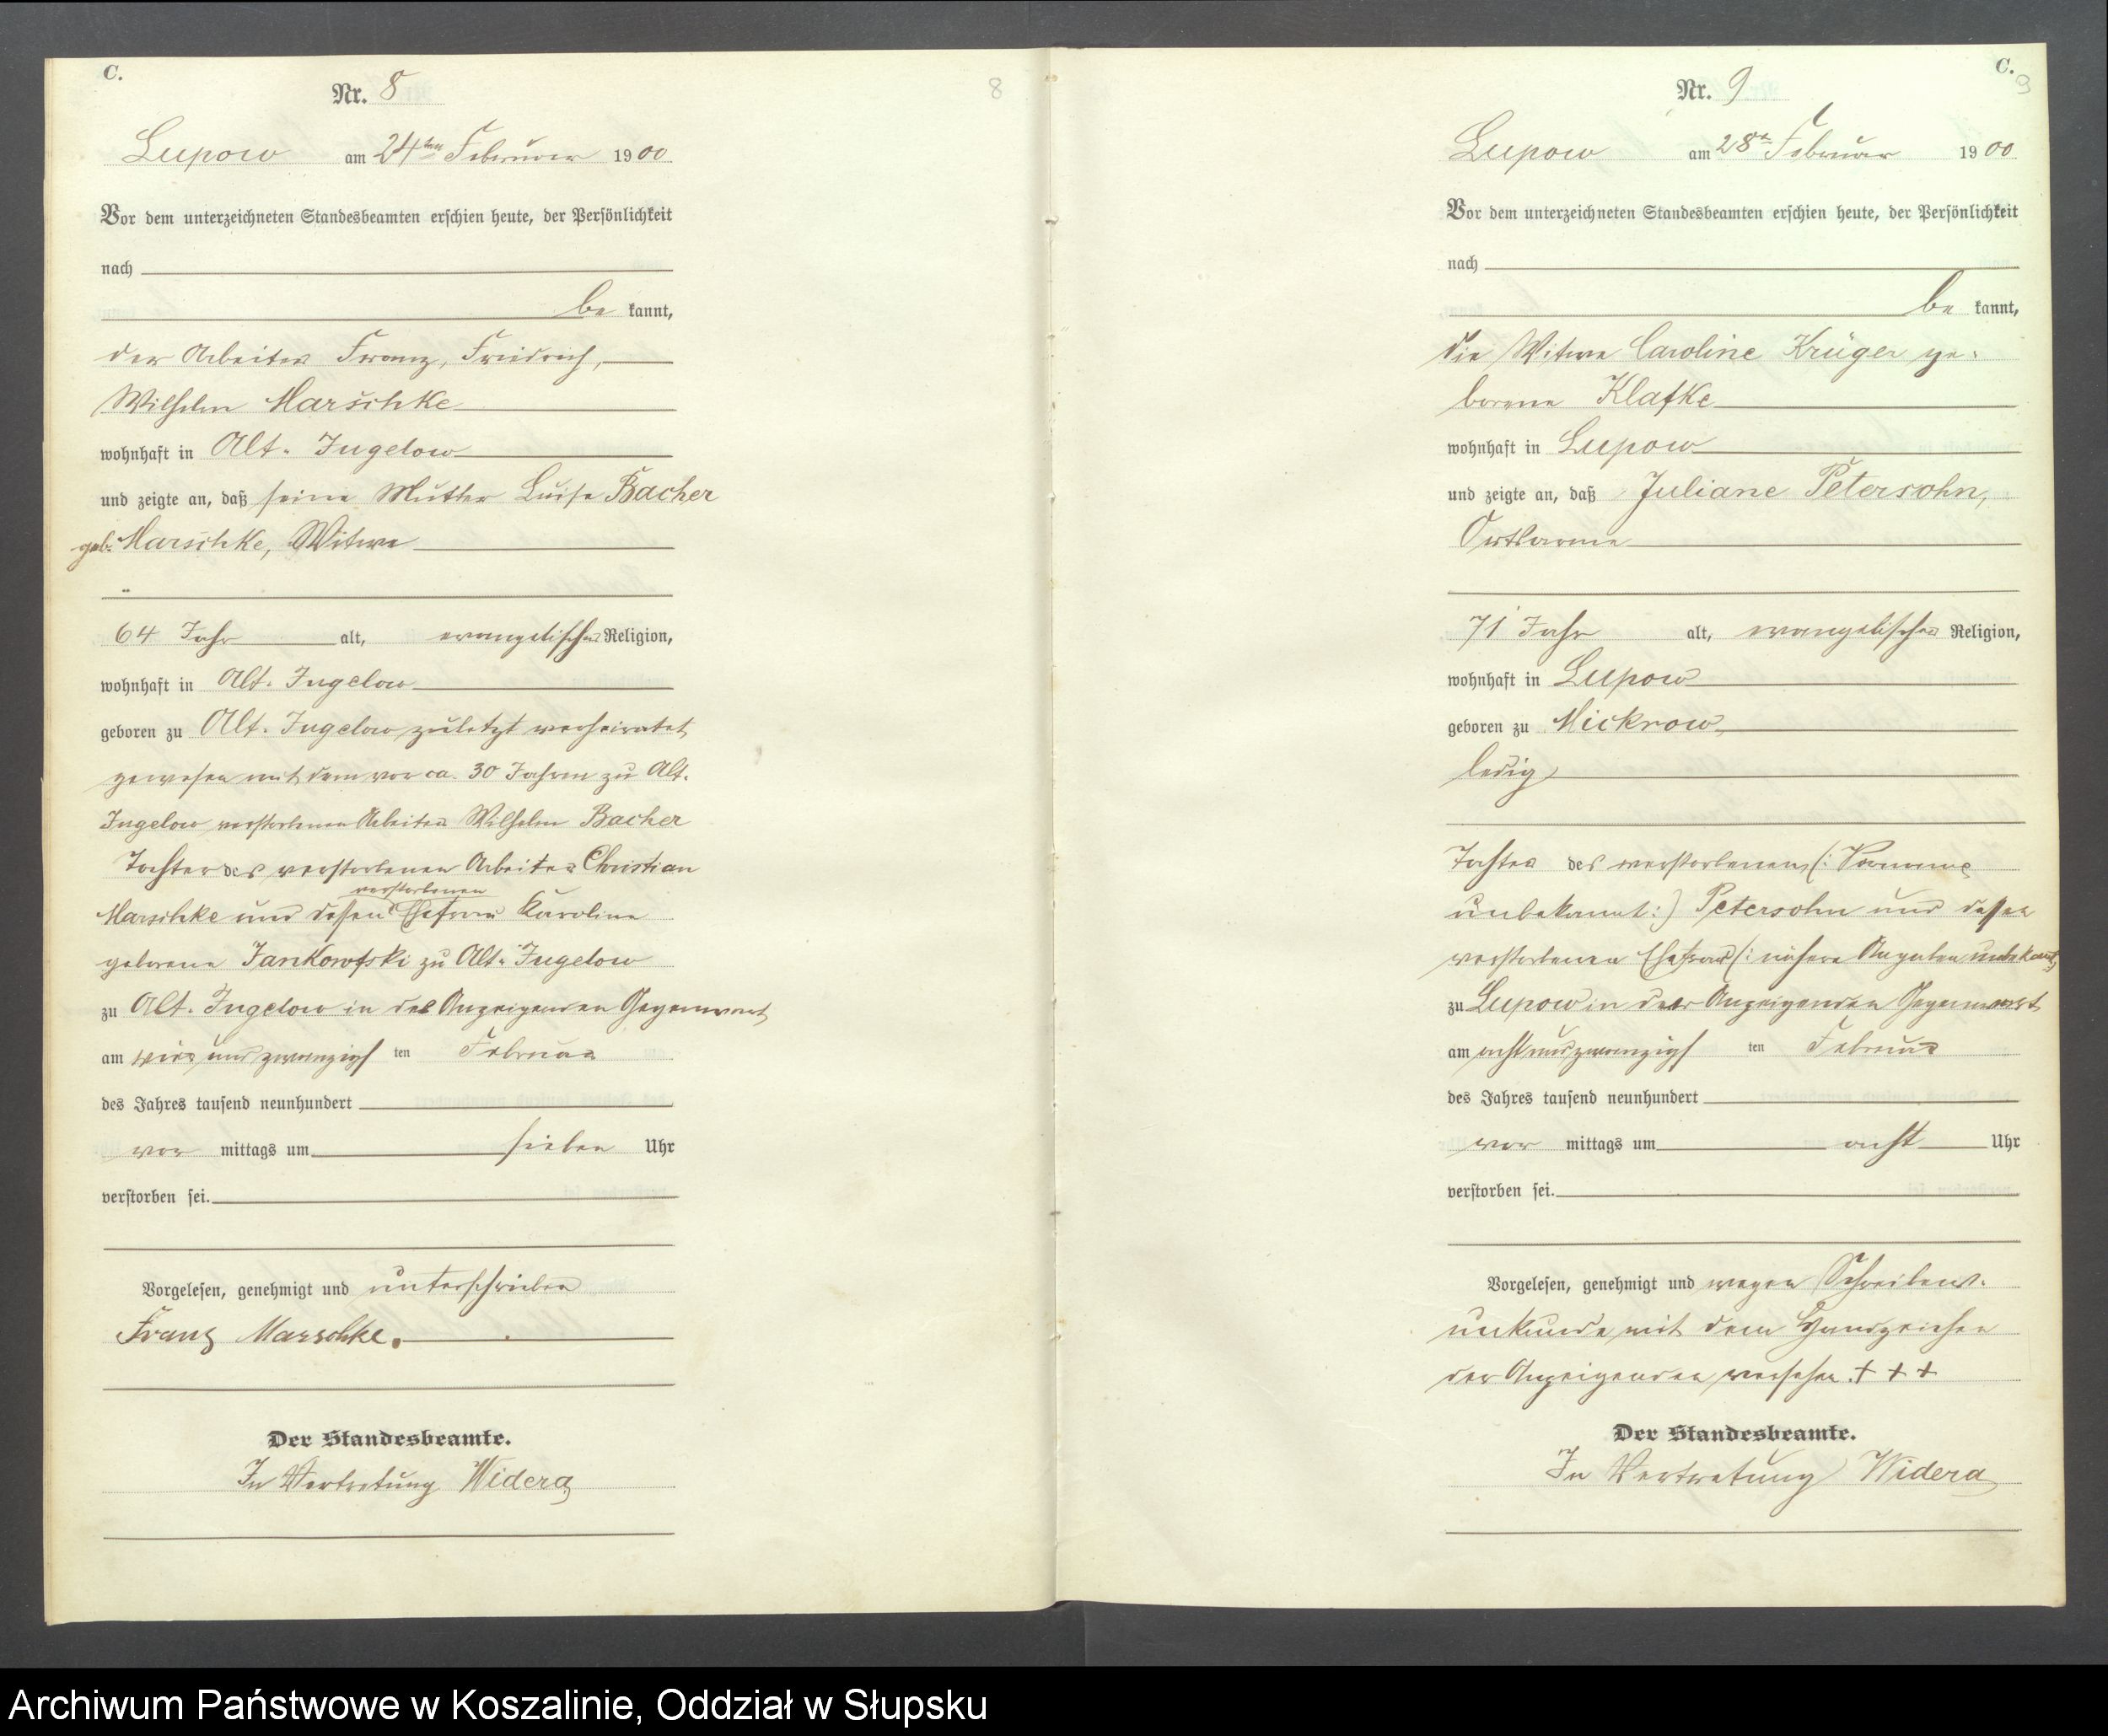 C.
Nr. 8
8
Lupow am 24ten Februar 1900
Vor dem unterzeichneten Standesbeamten erschien heute, der Persönlichkeit
nach
be kannt,
der Arbeiter Franz, Friedrich,
Wilhelm Marschke
wohnhaft in Alt-Jugelow
und zeigte an, daß seine Mutter Luise Bacher
geb. Marschke, Witwe
64 Jahr alt, evangelischer Religion,
wohnhaft in Alt-Jugelow
geboren zu Alt-Jugelow, zuletzt verheiratet
gewesen mit dem vor ca. 30 Jahren zu Alt-
Jugelow verstorbenen Arbeiter Wilhelm Bacher
Tochter des verstorbenen Arbeiters Christian
verstorbenen
Marschke und dessen Ehefrau Karoline
geborene Jankowfski zu Alt-Jugelow
zu Alt-Jugelow in des Anzeigenden Gegenwart
am vier und zwanzigs ten Februar
des Jahres tausend neunhundert
vor mittags um sieben Uhr
verstorben sei.
Vorgelesen, genehmigt und unterschrieben
Franz Marschke.
Der Standesbeamte.
In Vertretung Widera
C.
9
Nr. 9
Lupow am 28ten Februar 1900
Vor dem unterzeichneten Standesbeamten erschien heute, der Persönlichkeit
nach
be kannt,
die Witwe Caroline Krüger ge-
borene Klafke
wohnhaft in Lupow
und zeigte an, daß Juliane Petersohn,
Ortsarme
71 Jahr alt, evangelischer Religion,
wohnhaft in Lupow
geboren zu Mickrow,
ledig
Tochter des verstorbenen (: Vorname
unbekannt :) Petersohn und dessen
verstorbenen Ehefrau (: nähere Angaben unbekannt
zu Lupow in der Anzeigenden Gegenwart
am achtundzwanzigs ten Februar
des Jahres tausend neunhundert
vor mittags um acht Uhr
verstorben sei.
Vorgelesen, genehmigt und wegen Schreibens-
unkunde mit dem Handzeichen
der Anzeigenden versehen. + + +
Der Standesbeamte.
In Vertretung Widera
Archiwum Państwowe w Koszalinie, Oddział w Słupsku